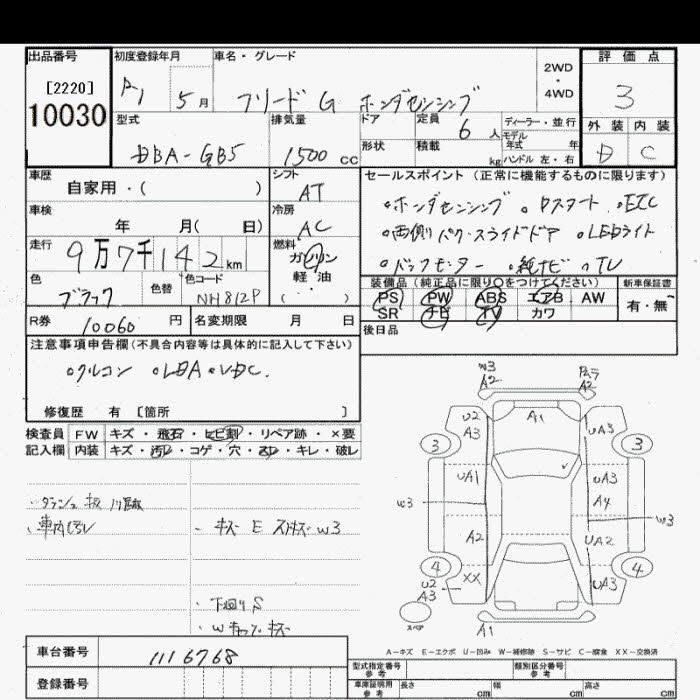 出品番号
[2220]
10030
初度登録年月
R1 5月
車名・グレード
フリード G ホンダセンシング
2WD
・
4WD
評価点
3
外装 内装
D C
型式
DBA-GB5
排気量
1500 cc
ドア
定員 6 人
ディーラー・並行
モデル
年式 年
形状
積載 kg
ハンドル 左・右
車歴
自家用・( )
シフト
AT
車検
年 月( 日)
冷房
AC
走行
9万7千142km
燃料
ガソリン
軽油
( ・ )
色
ブラック
色替
色コード
NH812P
セールスポイント(正常に機能するものに限ります)
。ホンダセンシング 。Pスタート 。ETC
。両側パワースライドドア 。LEDライト
。ドップモニター 。純ナビ 。TV
装備品(純正品に限り○をつけてください)
PS PW ABS エアB AW
SR ナビ TV カワ
新車保証書
有・無
後日品
R券 10060 円
名変期限 月 日
注意事項申告欄(不具合内容等は具体的に記入して下さい)
。クルコン 。LDA 。VDC.
修復歴 有 [箇所 ]
検査員 FW キズ・飛石・ヒビ割・リペア跡・×要
記入欄 内装 キズ・汚レ・コゲ・穴・スレ・キレ・破レ
・車内汚レ
・キズ E スリキズ W3
・下回り S
・W キャップ キズ
W3
A2
A2
U2
A3
A1
UA3
3
3
UA1
UA3
A4
W3
W3
A2
UA2
4
4
XX
UA3
U2
A3
スペア
A1
A-キズ E-エクボ U-凹み W-補修跡 S-サビ C-腐食 XX-交換済
車台番号 1116768
登録番号
型式指定番号
参考
類別区分番号
参考
車庫証明用
参考
長さ cm 幅 cm 高さ cm